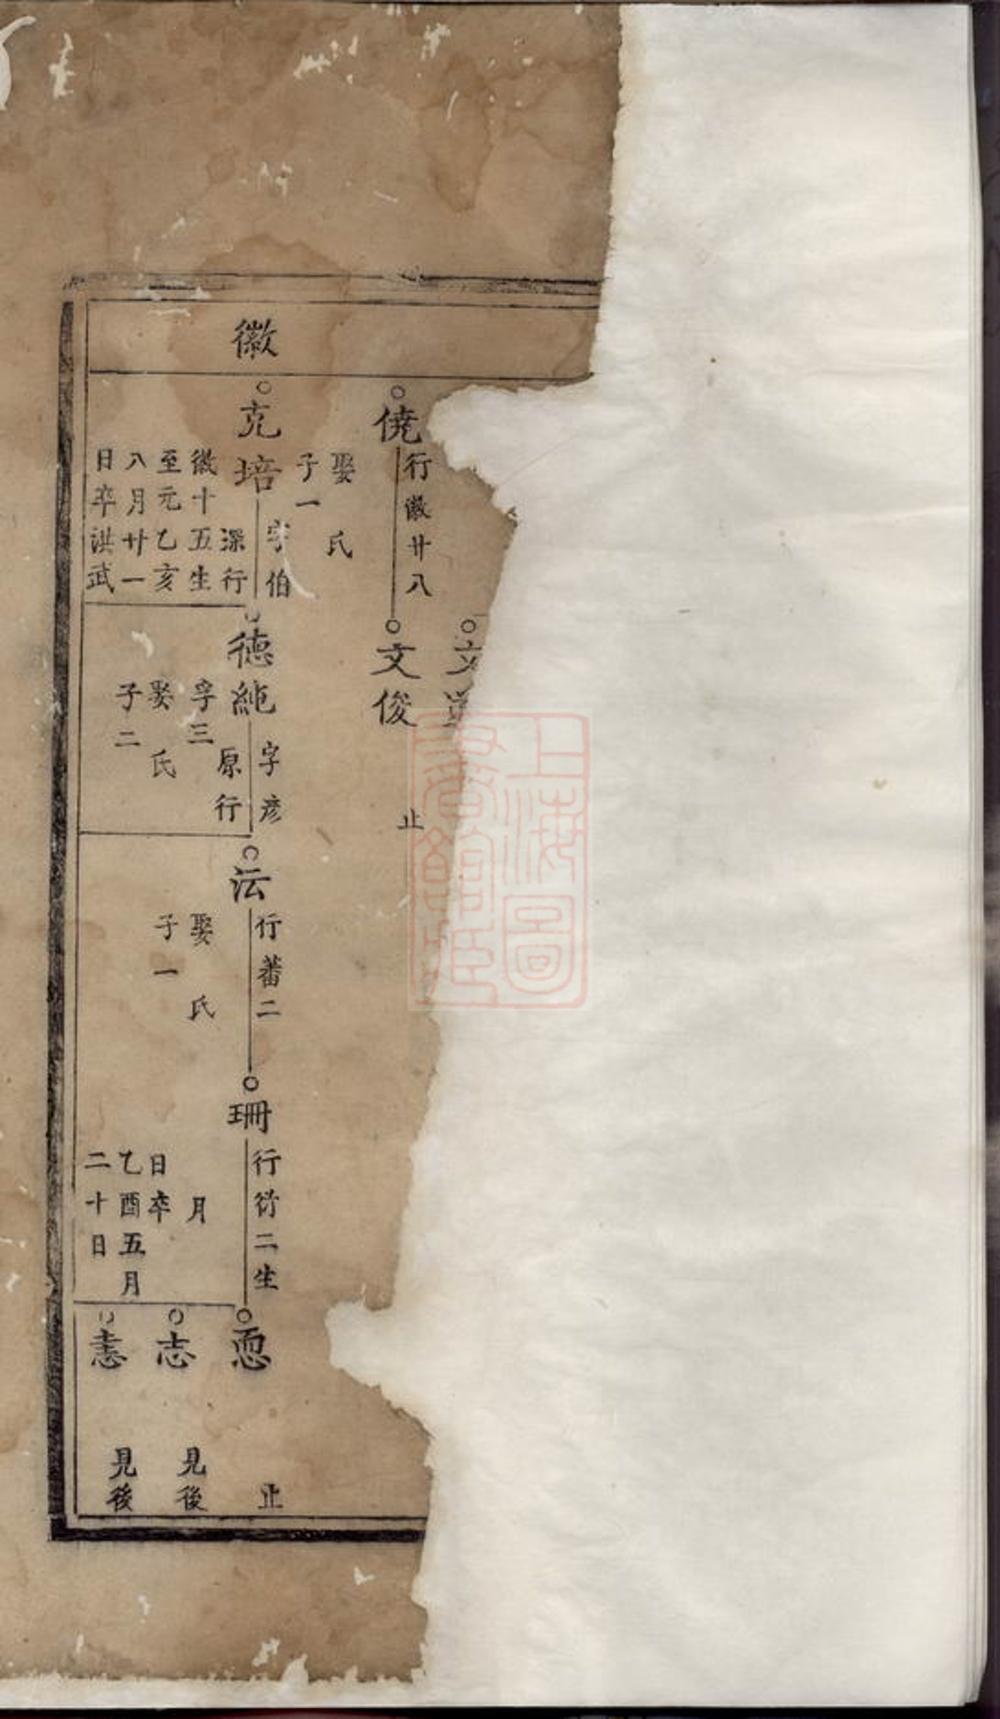 徽
文
僥
行徽廿八
娶 氏
子一
文俊
止
克培
字伯
深行
徽十五生
至元乙亥
八月廿一
日卒洪武
德純
字彦
原行
孚三
娶 氏
子二
沄
行蕃二
娶 氏
子一
珊
行衍二生
月
日卒
乙酉五月
二十日
恧
止
志
見後
恚
見後
上海圖書館藏